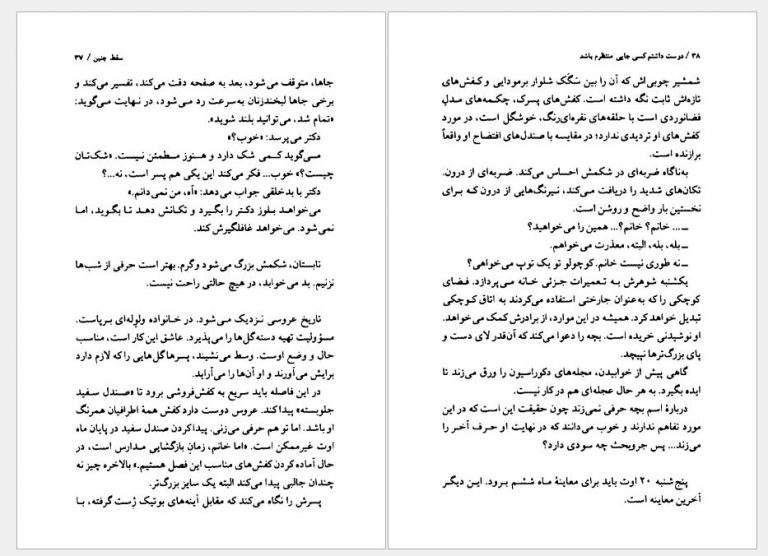 سقط جنین / ۳۷
جاها، متوقف می‌شود، بعد به صفحه دقت می‌کند، تفسیر می‌کند و
برخی جاها لبخندزنان به‌سرعت رد می‌شود، در نهایت می‌گوید:
«تمام شد، می‌توانید بلند شوید».
دکتر می‌پرسد: «خوب؟»
می‌گوید کمی شک دارد و هنوز مطمئن نیست. «شک‌تان
چیست؟» خوب... فکر می‌کند این یکی هم پسر است، نه...؟
دکتر با بدخلقی جواب می‌دهد: «آه، من نمی‌دانم.»
می‌خواهد بلوز دکتر را بگیرد و تکانش دهد تا بگوید، اما
نمی‌شود. می‌خواهد غافلگیرش کند.
تابستان، شکمش بزرگ می‌شود وگرم. بهتر است حرفی از شب‌ها
نزنیم. بد می‌خوابد، در هیچ حالتی راحت نیست.
تاریخ عروسی نزدیک می‌شود. در خانواده ولوله‌ای برپاست.
مسؤولیت تهیه دسته‌گل‌ها را می‌پذیرد. عاشق این کار است، مناسب
حال و وضع اوست. وسط می‌نشیند، پسرها گل‌هایی را که لازم دارد
برایش می‌آورند و او آن‌ها را می‌آراید.
در این فاصله باید سریع به کفش‌فروشی برود تا «صندل سفید
جلوبسته» پیدا کند. عروس دوست دارد کفش همهٔ اطرافیان همرنگ
او باشد. اما تو هم حرفی می‌زنی. پیدا کردن صندل سفید در پایان ماه
اوت غیرممکن است. «اما خانم، زمان بازگشایی مدارس است، در
حال آماده کردن کفش‌های مناسب این فصل هستیم.» بالاخره چیز نه
چندان جالبی پیدا می‌کند البته یک سایز بزرگ‌تر.
پسرش را نگاه می‌کند که مقابل آینه‌های بوتیک ژست گرفته، با
۳۸ / دوست داشتم کسی جایی منتظرم باشد
شمشیر چوبی‌اش که آن را بین سگک شلوار برمودایی و کفش‌های
تازه‌اش ثابت نگه داشته است. کفش‌های پسرک، چکمه‌های مدل
فضانوردی است با حلقه‌های نقره‌ای‌رنگ، خوشگل است، در مورد
کفش‌های او تردیدی ندارد؛ در مقایسه با صندل‌های افتضاح او واقعاً
برازنده است.
به‌ناگاه ضربه‌ای در شکمش احساس می‌کند. ضربه‌ای از درون.
تکان‌های شدید را دریافت می‌کند، نیرنگ‌هایی از درون که برای
نخستین بار واضح و روشن است.
ــ ... خانم؟ خانم؟... همین را می‌خواهید؟
ــ بله، بله، البته، معذرت می‌خواهم.
ــ نه طوری نیست خانم. کوچولو تو یک توپ می‌خواهی؟
یکشنبه شوهرش به تعمیرات جزئی خانه می‌پردازد. فضای
کوچکی را که به‌عنوان جارختی استفاده می‌کردند به اتاق کوچکی
تبدیل خواهد کرد. همیشه در این موارد، از برادرش کمک می‌خواهد.
او نوشیدنی خریده است. بچه را دعوا می‌کند که آن‌قدر لای دست و
پای بزرگ‌ترها نپیچد.
گاهی پیش از خوابیدن، مجله‌های دکوراسیون را ورق می‌زند تا
ایده بگیرد. به هر حال عجله‌ای هم در کار نیست.
دربارهٔ اسم بچه حرفی نمی‌زند چون حقیقت این است که در این
مورد تفاهم ندارند و خوب می‌دانند که در نهایت او حرف آخر را
می‌زند... پس جروبحث چه سودی دارد؟
پنج‌شنبه ۲۰ اوت باید برای معاینهٔ ماه ششم برود. این دیگر
آخرین معاینه است.